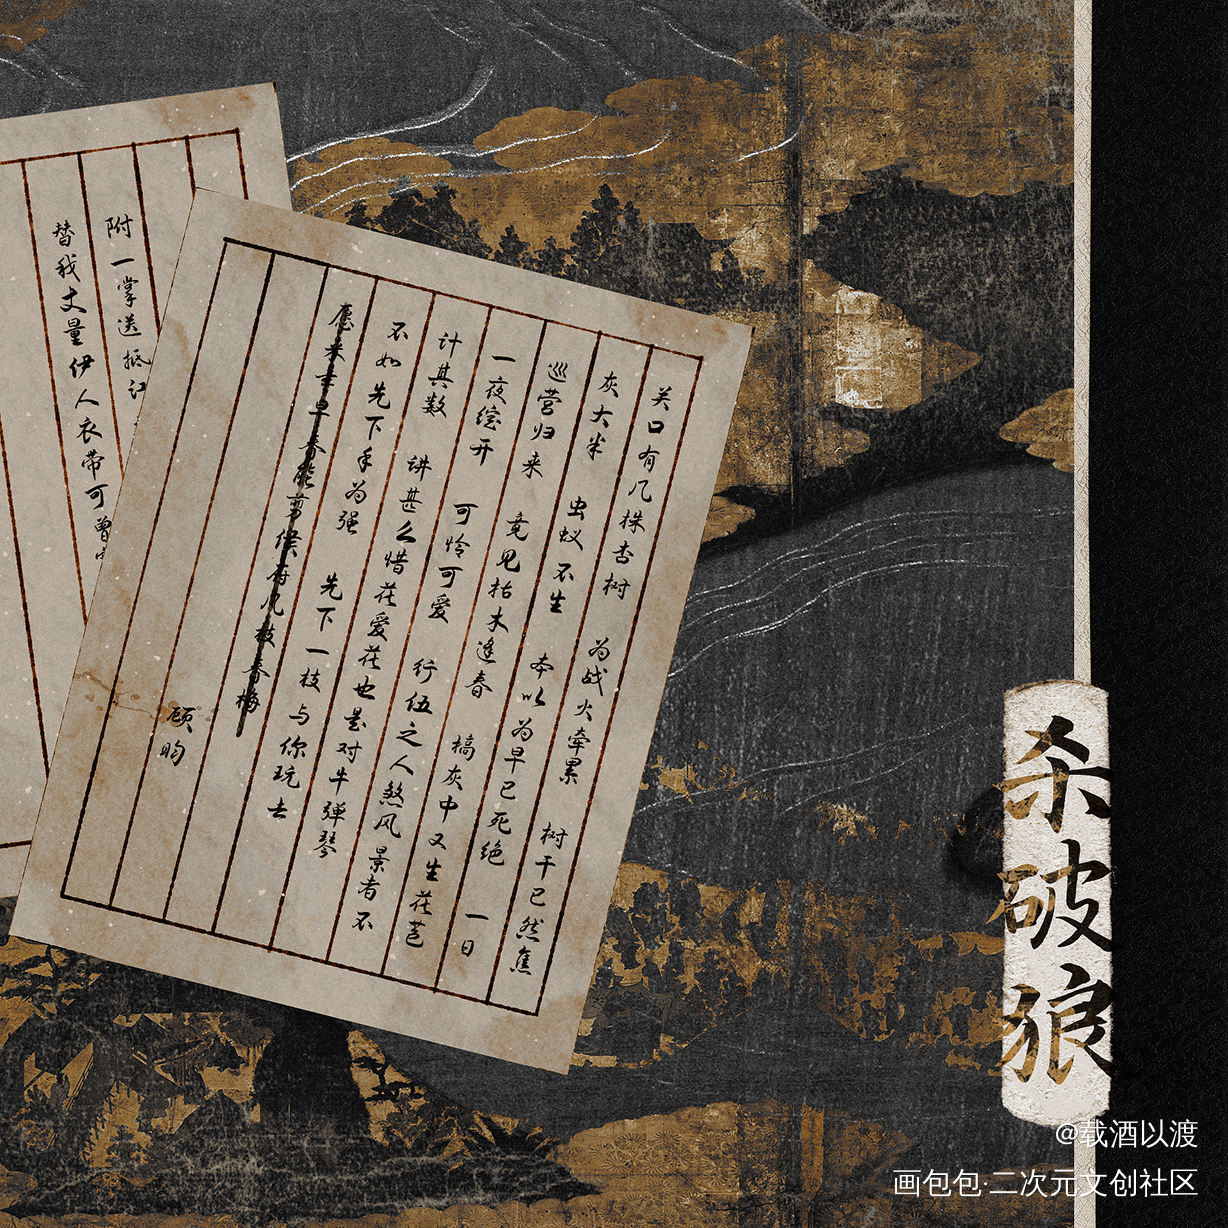 关口有几株杏树 为战火牵累 树干已然焦
灰大半 虫蚁不生 本以为早已死绝 一日
巡营归来 竟见枯木逢春 槁灰中又生花苞
一夜绽开 可怜可爱 行伍之人煞风景者不
计其数 讲甚么惜花爱花也是对牛弹琴
不如先下手为强 先下一枝与你玩去
愿来年早春能剪侯府几枝春梅
顾昀
附一掌送抵江
替我丈量伊人衣带可曾
杀破狼
@载酒以渡
画包包·二次元文创社区